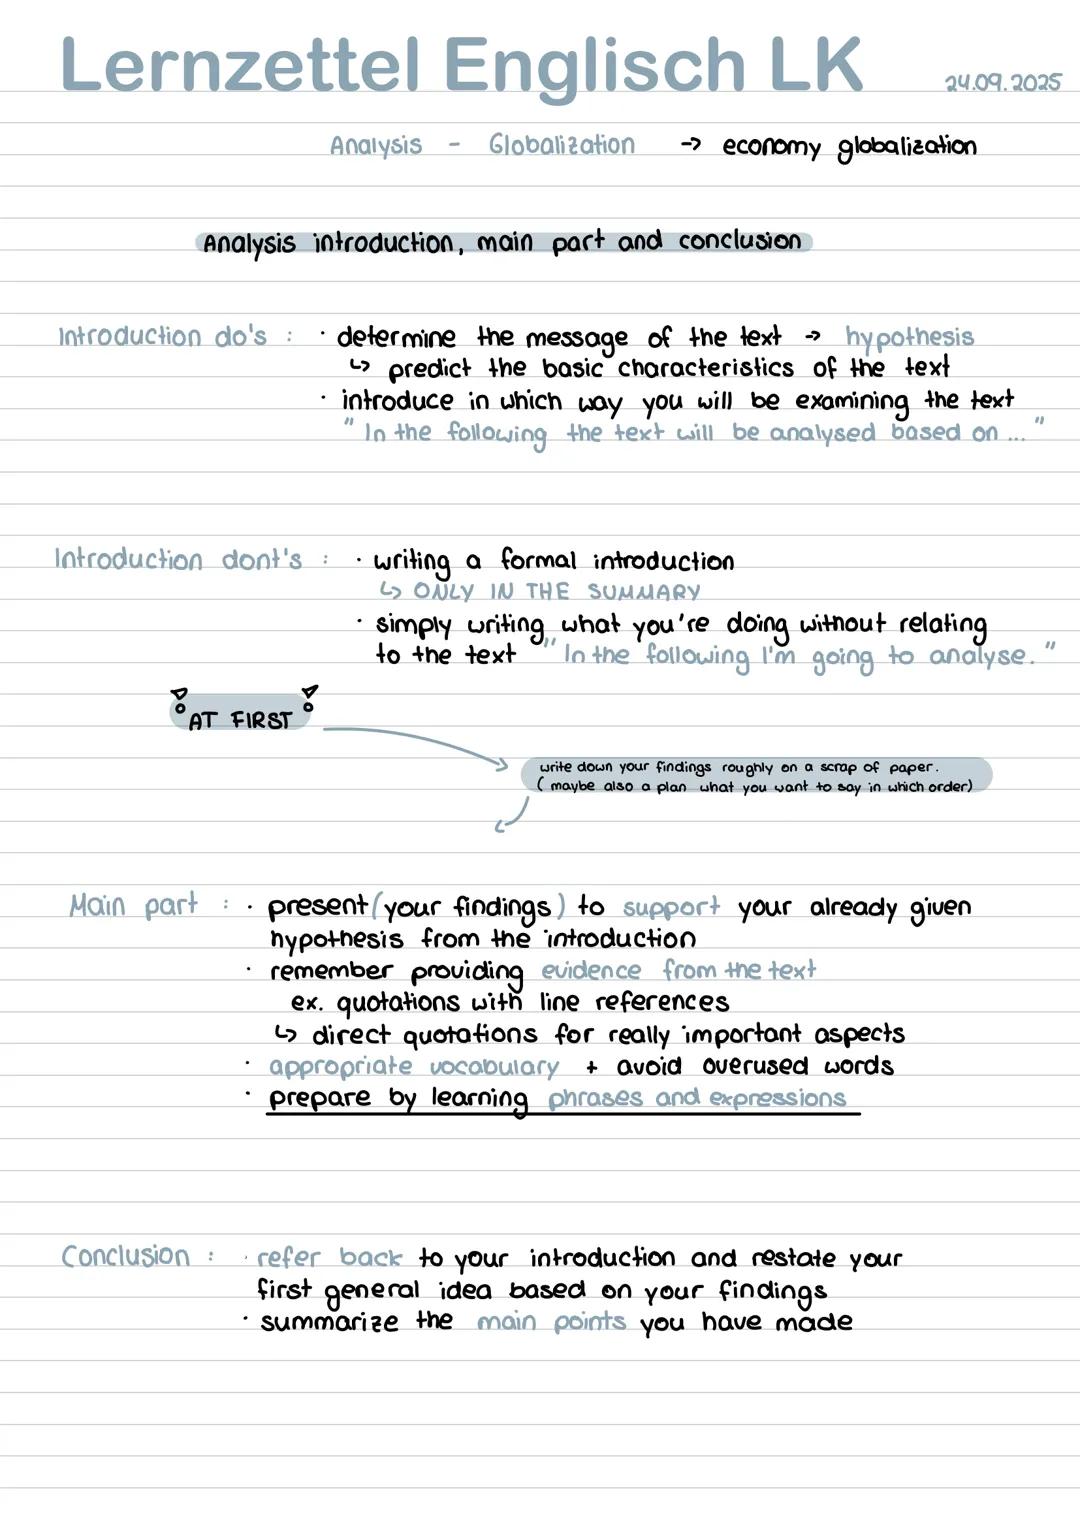 Lernzettel Englisch LK
24.09.2025
Analysis - Globalization -> economy globalization
Analysis introduction, main part and conclusion
Introduction do's : · determine the message of the text → hypothesis
↳ predict the basic characteristics of the text
· introduce in which way you will be examining the text
" In the following the text will be analysed based on ... "
Introduction dont's : · writing a formal introduction
↳ ONLY IN THE SUMMARY
· simply writing what you're doing without relating
to the text "In the following I'm going to analyse. "
AT FIRST
write down your findings roughly on a scrap of paper.
( maybe also a plan what you want to say in which order)
Main part : · present (your findings) to support your already given
hypothesis from the introduction
· remember providing evidence from the text
ex. quotations with line references
↳ direct quotations for really important aspects
· appropriate vocabulary + avoid overused words
· prepare by learning phrases and expressions
Conclusion : · refer back to your introduction and restate your
first general idea based on your findings
· summarize the main points you have made